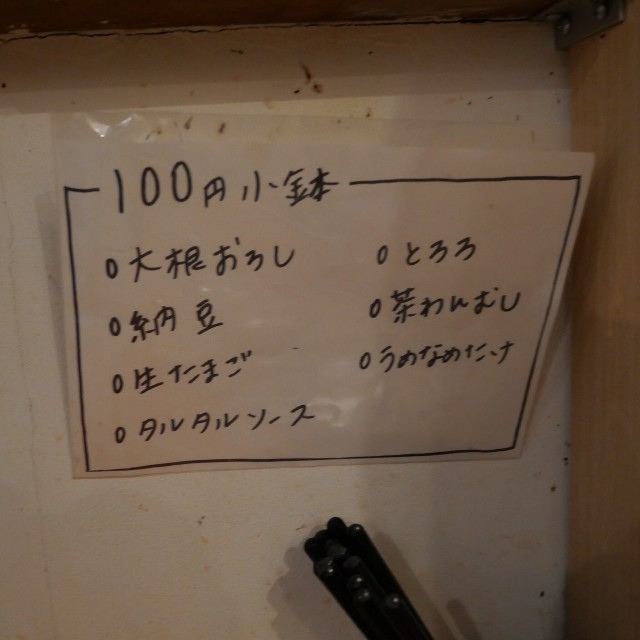 100円小鉢
o大根おろし
o納豆
o生たまご
oタルタルソース
oとろろ
o茶わんむし
oうめなめたけ